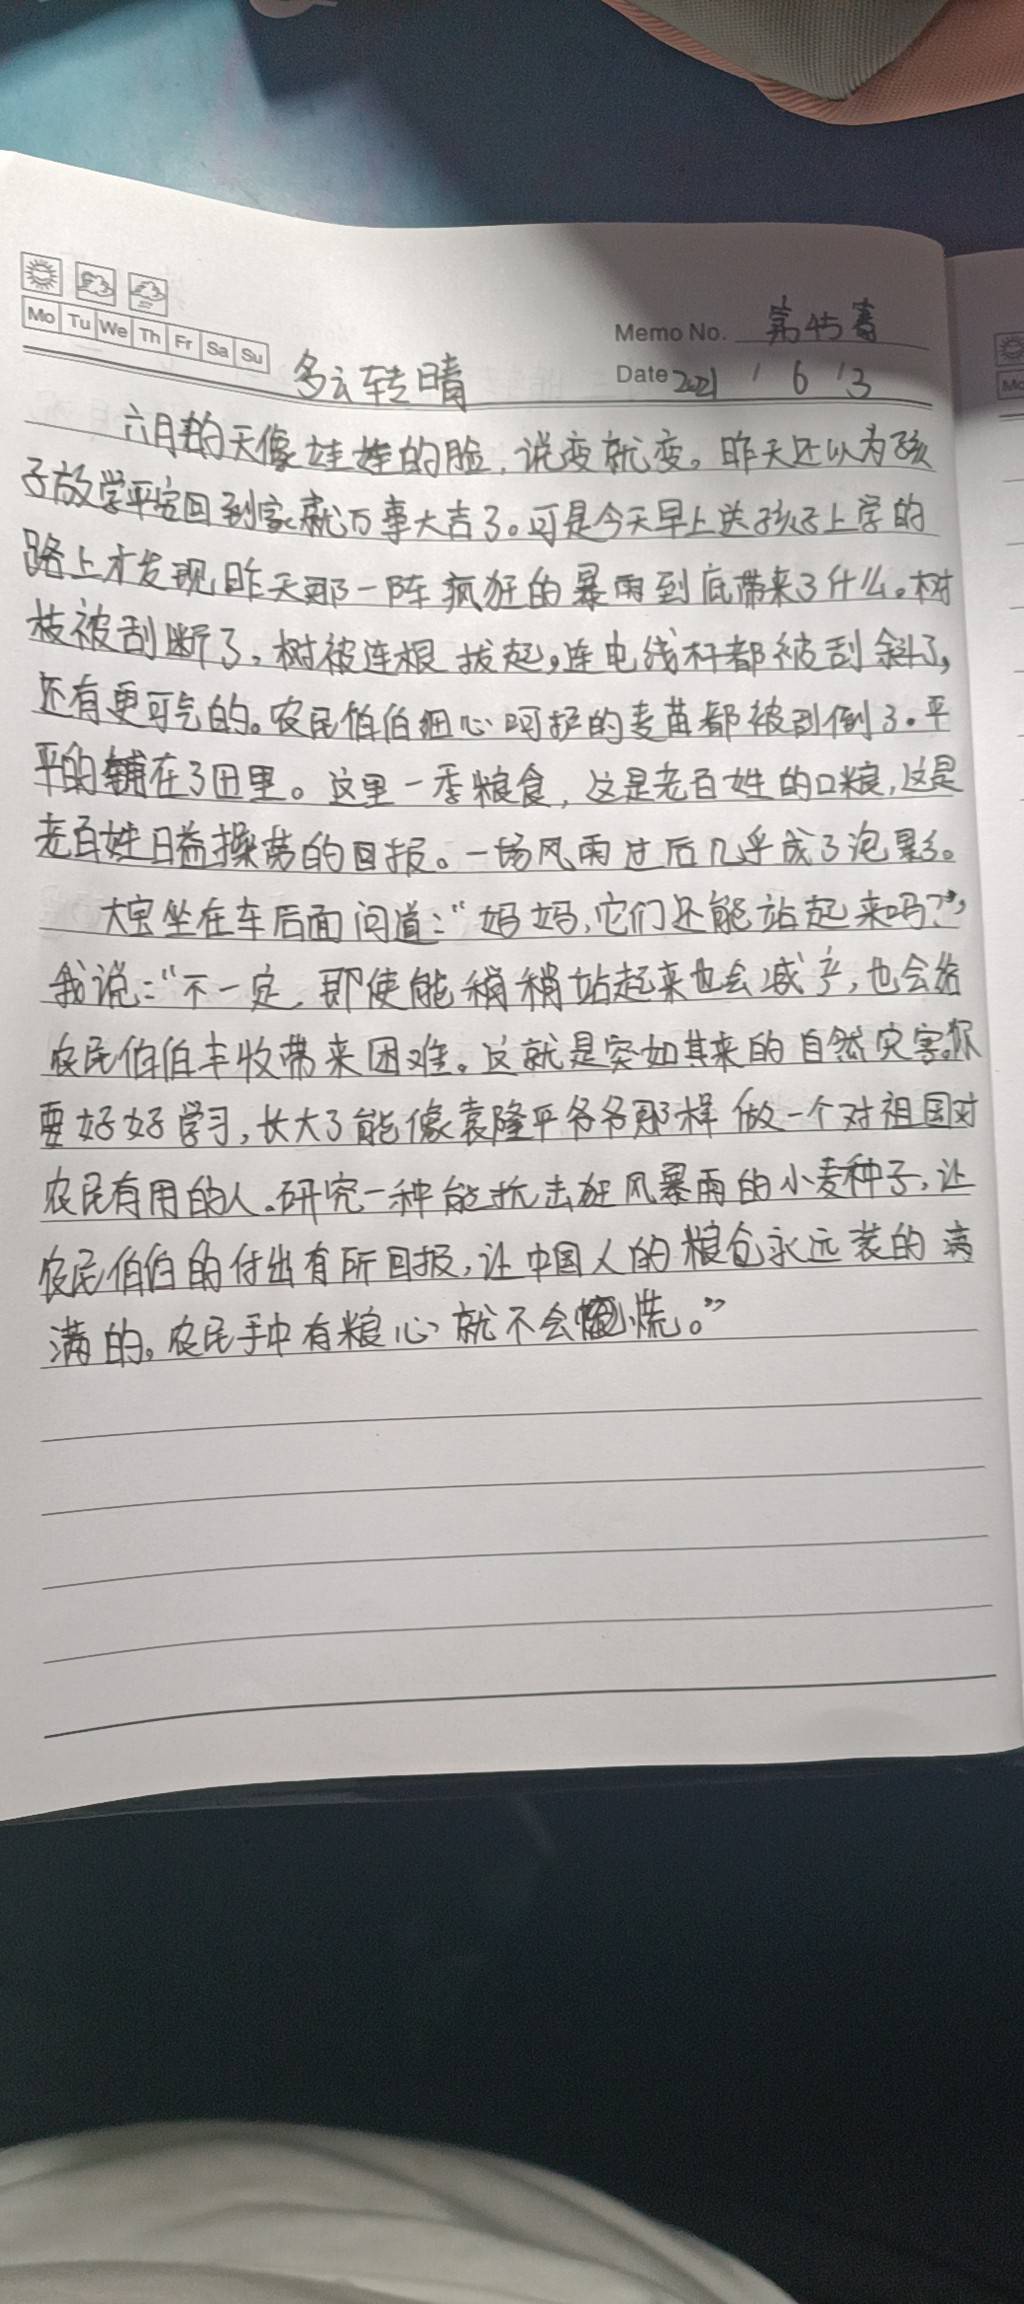 Mo Tu We Th Fr Sa Su
Memo No. 第45篇
Date 2021 / 6 / 3
多云转晴
六月的天像娃娃的脸,说变就变。昨天还以为孩
子放学平安回到家就万事大吉了。可是今天早上送孩子上学的
路上才发现昨天那一阵疯狂的暴雨到底带来了什么。树
枝被刮断了,树被连根拔起,连电线杆都被刮斜了,
还有更可气的。农民伯伯细心呵护的麦苗都被刮倒了。平
平的铺在了田里。这里一季粮食,这是老百姓的口粮,这是
老百姓日益操劳的回报。一场风雨过后几乎成了泡影。
大宝坐在车后面问道:“妈妈,它们还能站起来吗?”
我说:“不一定,即使能稍稍站起来也会减产,也会给
农民伯伯丰收带来困难。这就是突如其来的自然灾害。你
要好好学习,长大了能像袁隆平爷爷那样做一个对祖国对
农民有用的人。研究一种能抗击狂风暴雨的小麦种子,让
农民伯伯的付出有所回报,让中国人的粮仓永远装的满
满的。农民手中有粮心就不会慌。”